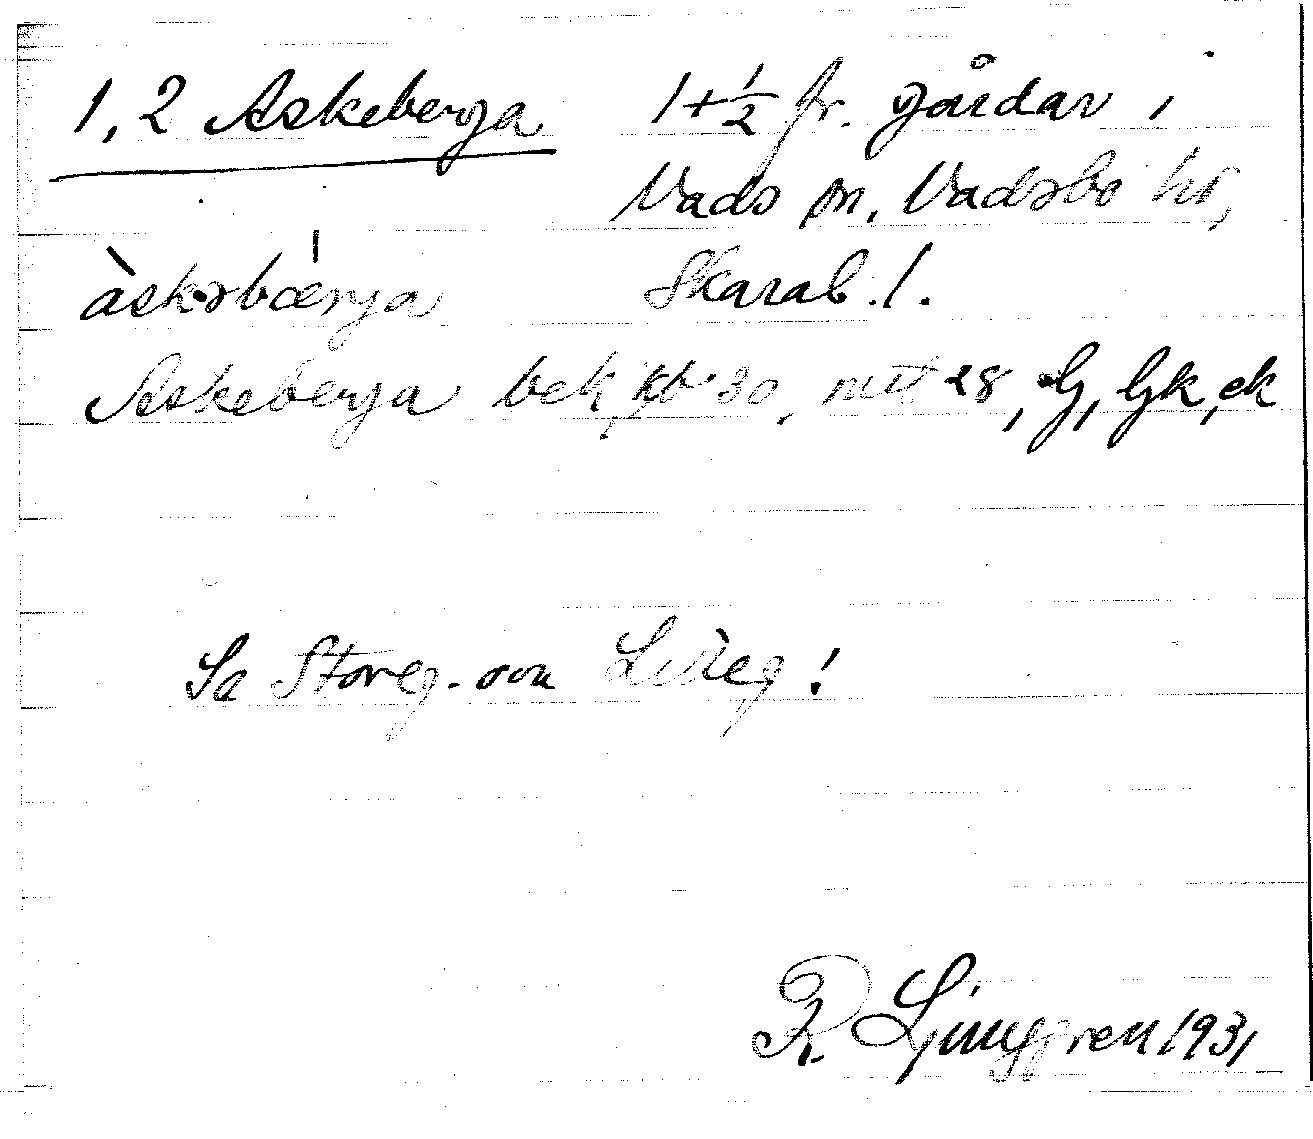 1, 2 Askeberga 1+½ fr. gårdar i
Vads sn. Vadsbo hd,
àskəbæ̀rja Skarab. l.
Askeberga bek, kb 30, mtl 28, G, Gk, ek
Sa Storeg. och Lilleg!
R Ljunggren 1931